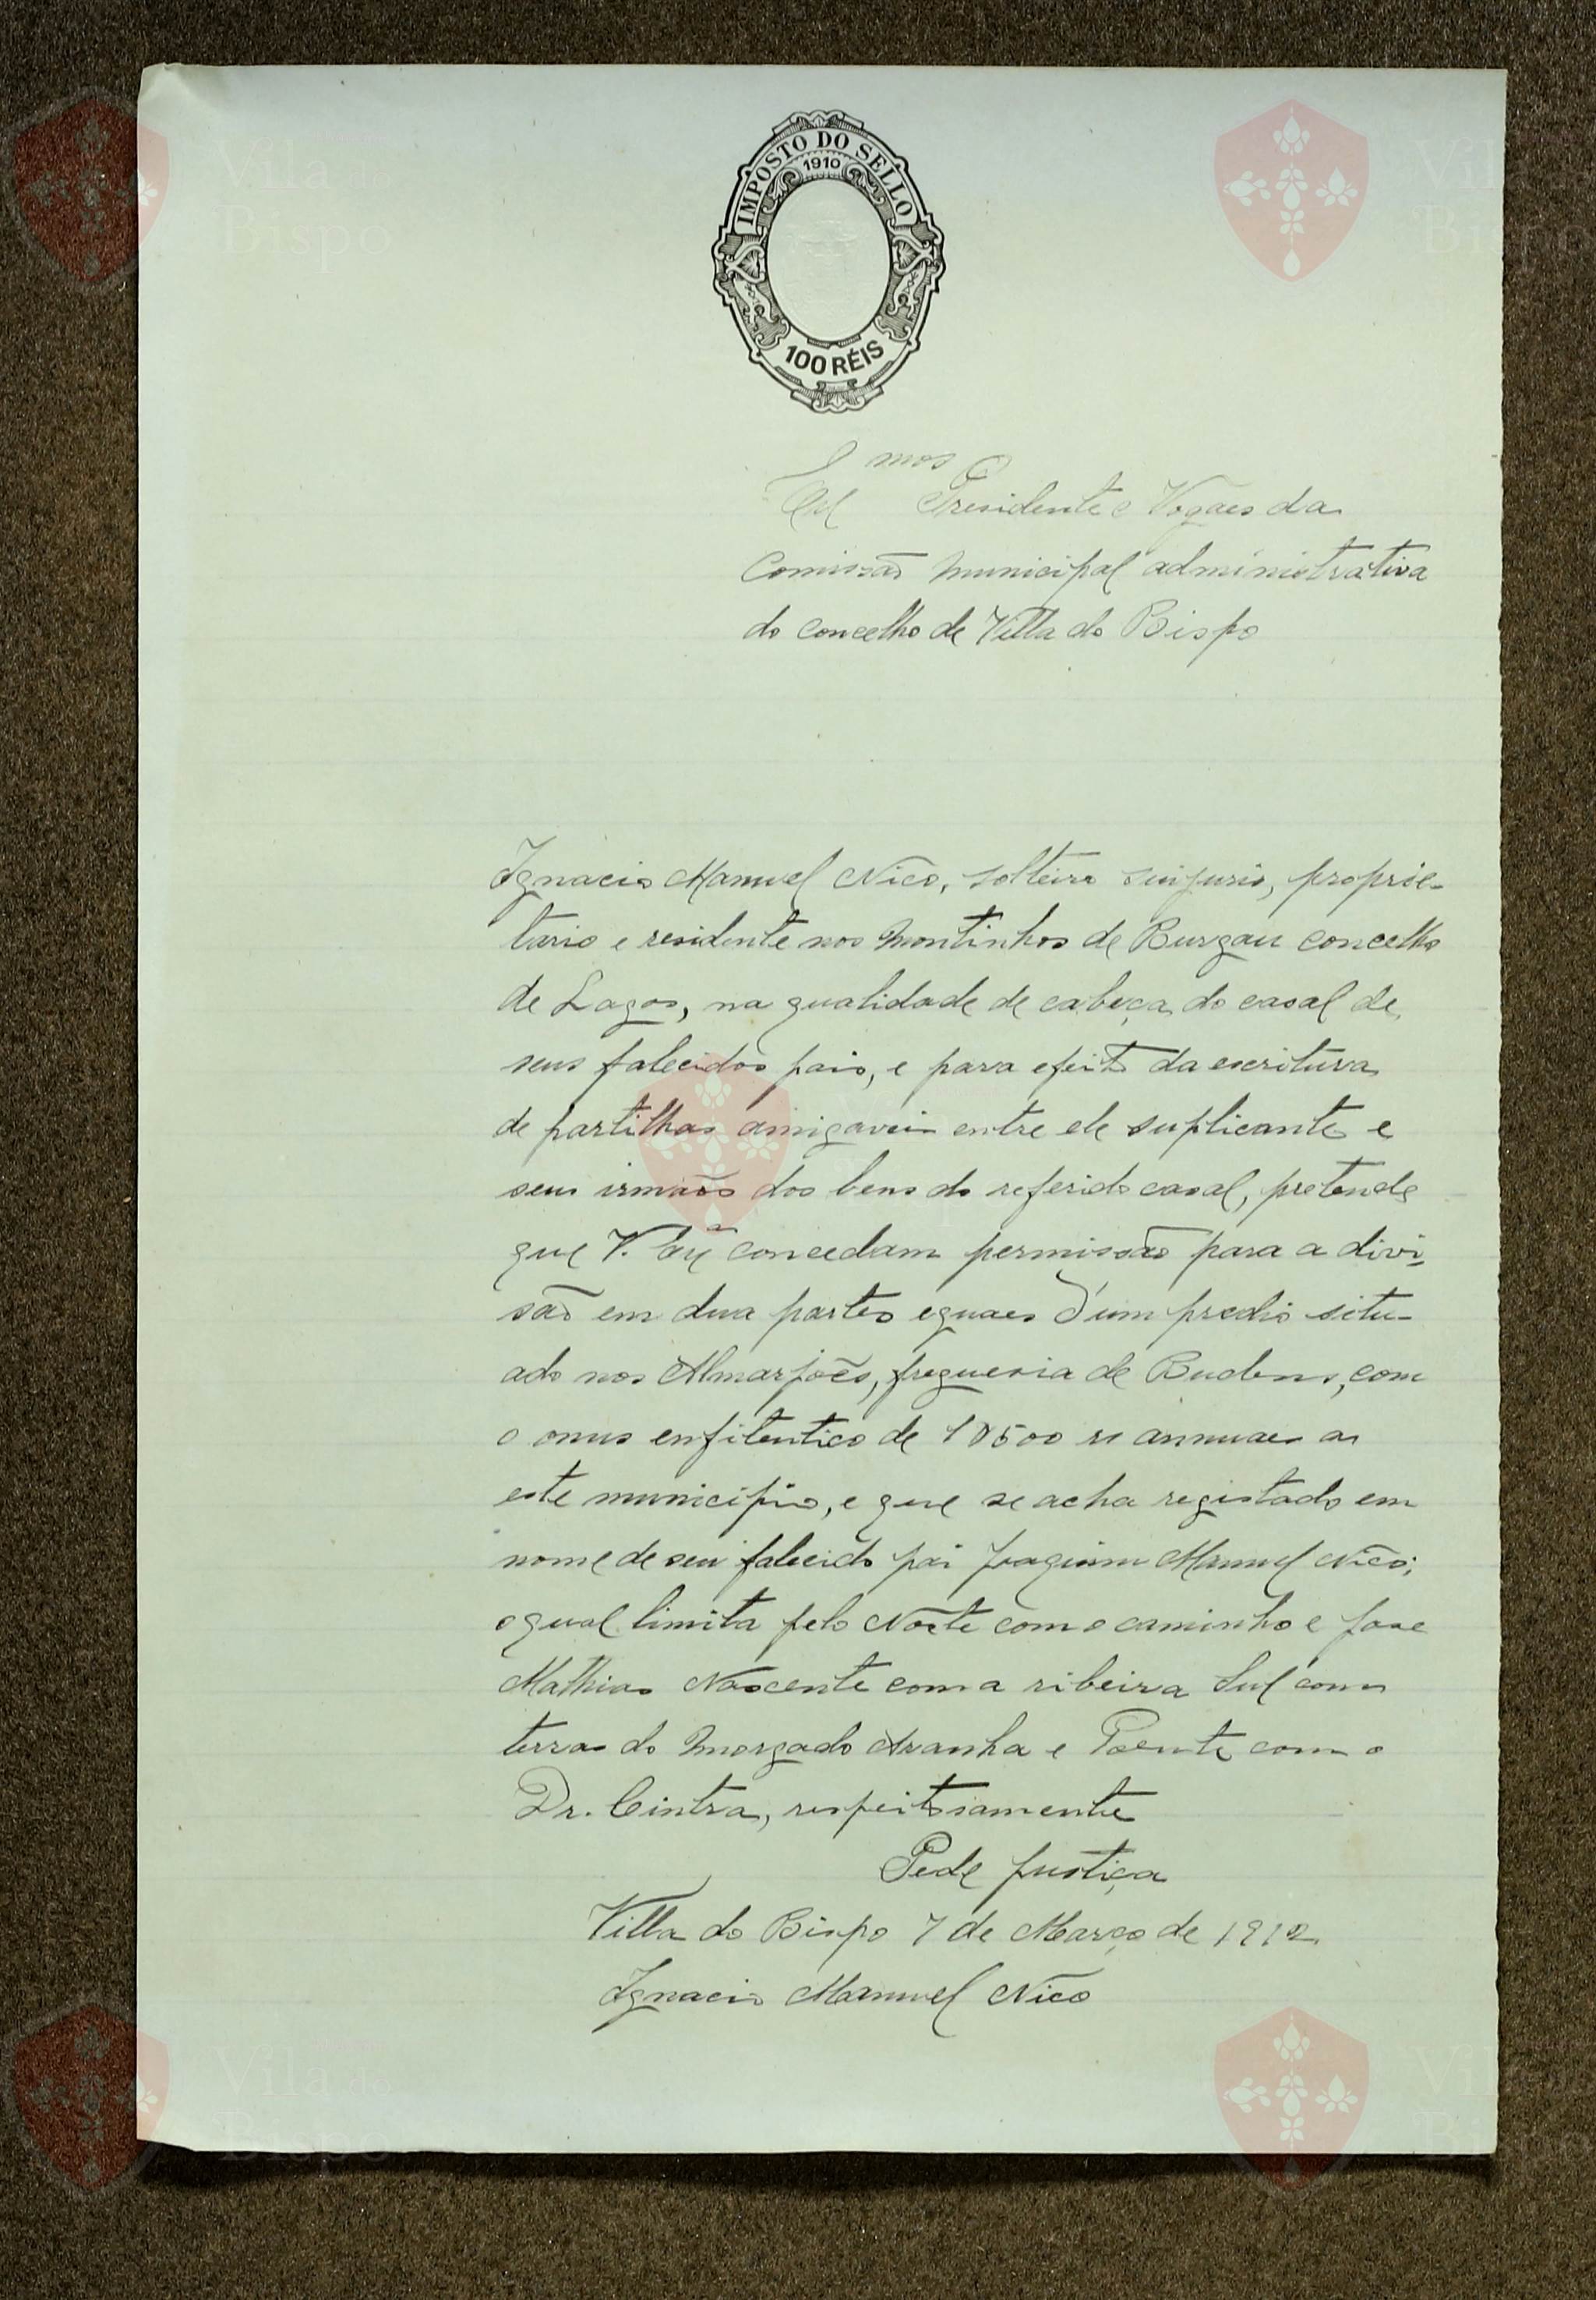 IMPOSTO DO SELLO
1910
100 RÉIS
mos
Presidente e Vogaes da
Comissão Municipal administrativa
do concelho de Villa do Bispo
Ignacio Manuel Nico, solteiro suijuris, proprie-
tario e residente nos Montinhos de Burgau concelho
de Lagos, na qualidade de cabeça do casal de
seus falecidos pais, e para efeito da escritura
de partilhas amigaveis entre ele suplicante e
seus irmaõs dos bens do referido casal, pretende
que V. Exªˢ concedam permissão para a divi-
são em dua partes eguaes d'um predio situ-
ado nos Almarjoês, freguesia de Budens, com
o onus enfiteutico de 1$500 rs annuaes a
este municipio, e que se acha registado em
nome de seu falecido pai Joaquim Manuel Nico;
o qual limita pelo Norte com o caminho e Jose
Mathias Nascente com a ribeira Sul com
terras do Morgado Aranha e Poente com o
Dr. Cintra, respeitosamente
Pede Justiça
Villa do Bispo 7 de Março de 1912
Ignacio Manuel Nico
Vila do
Bispo